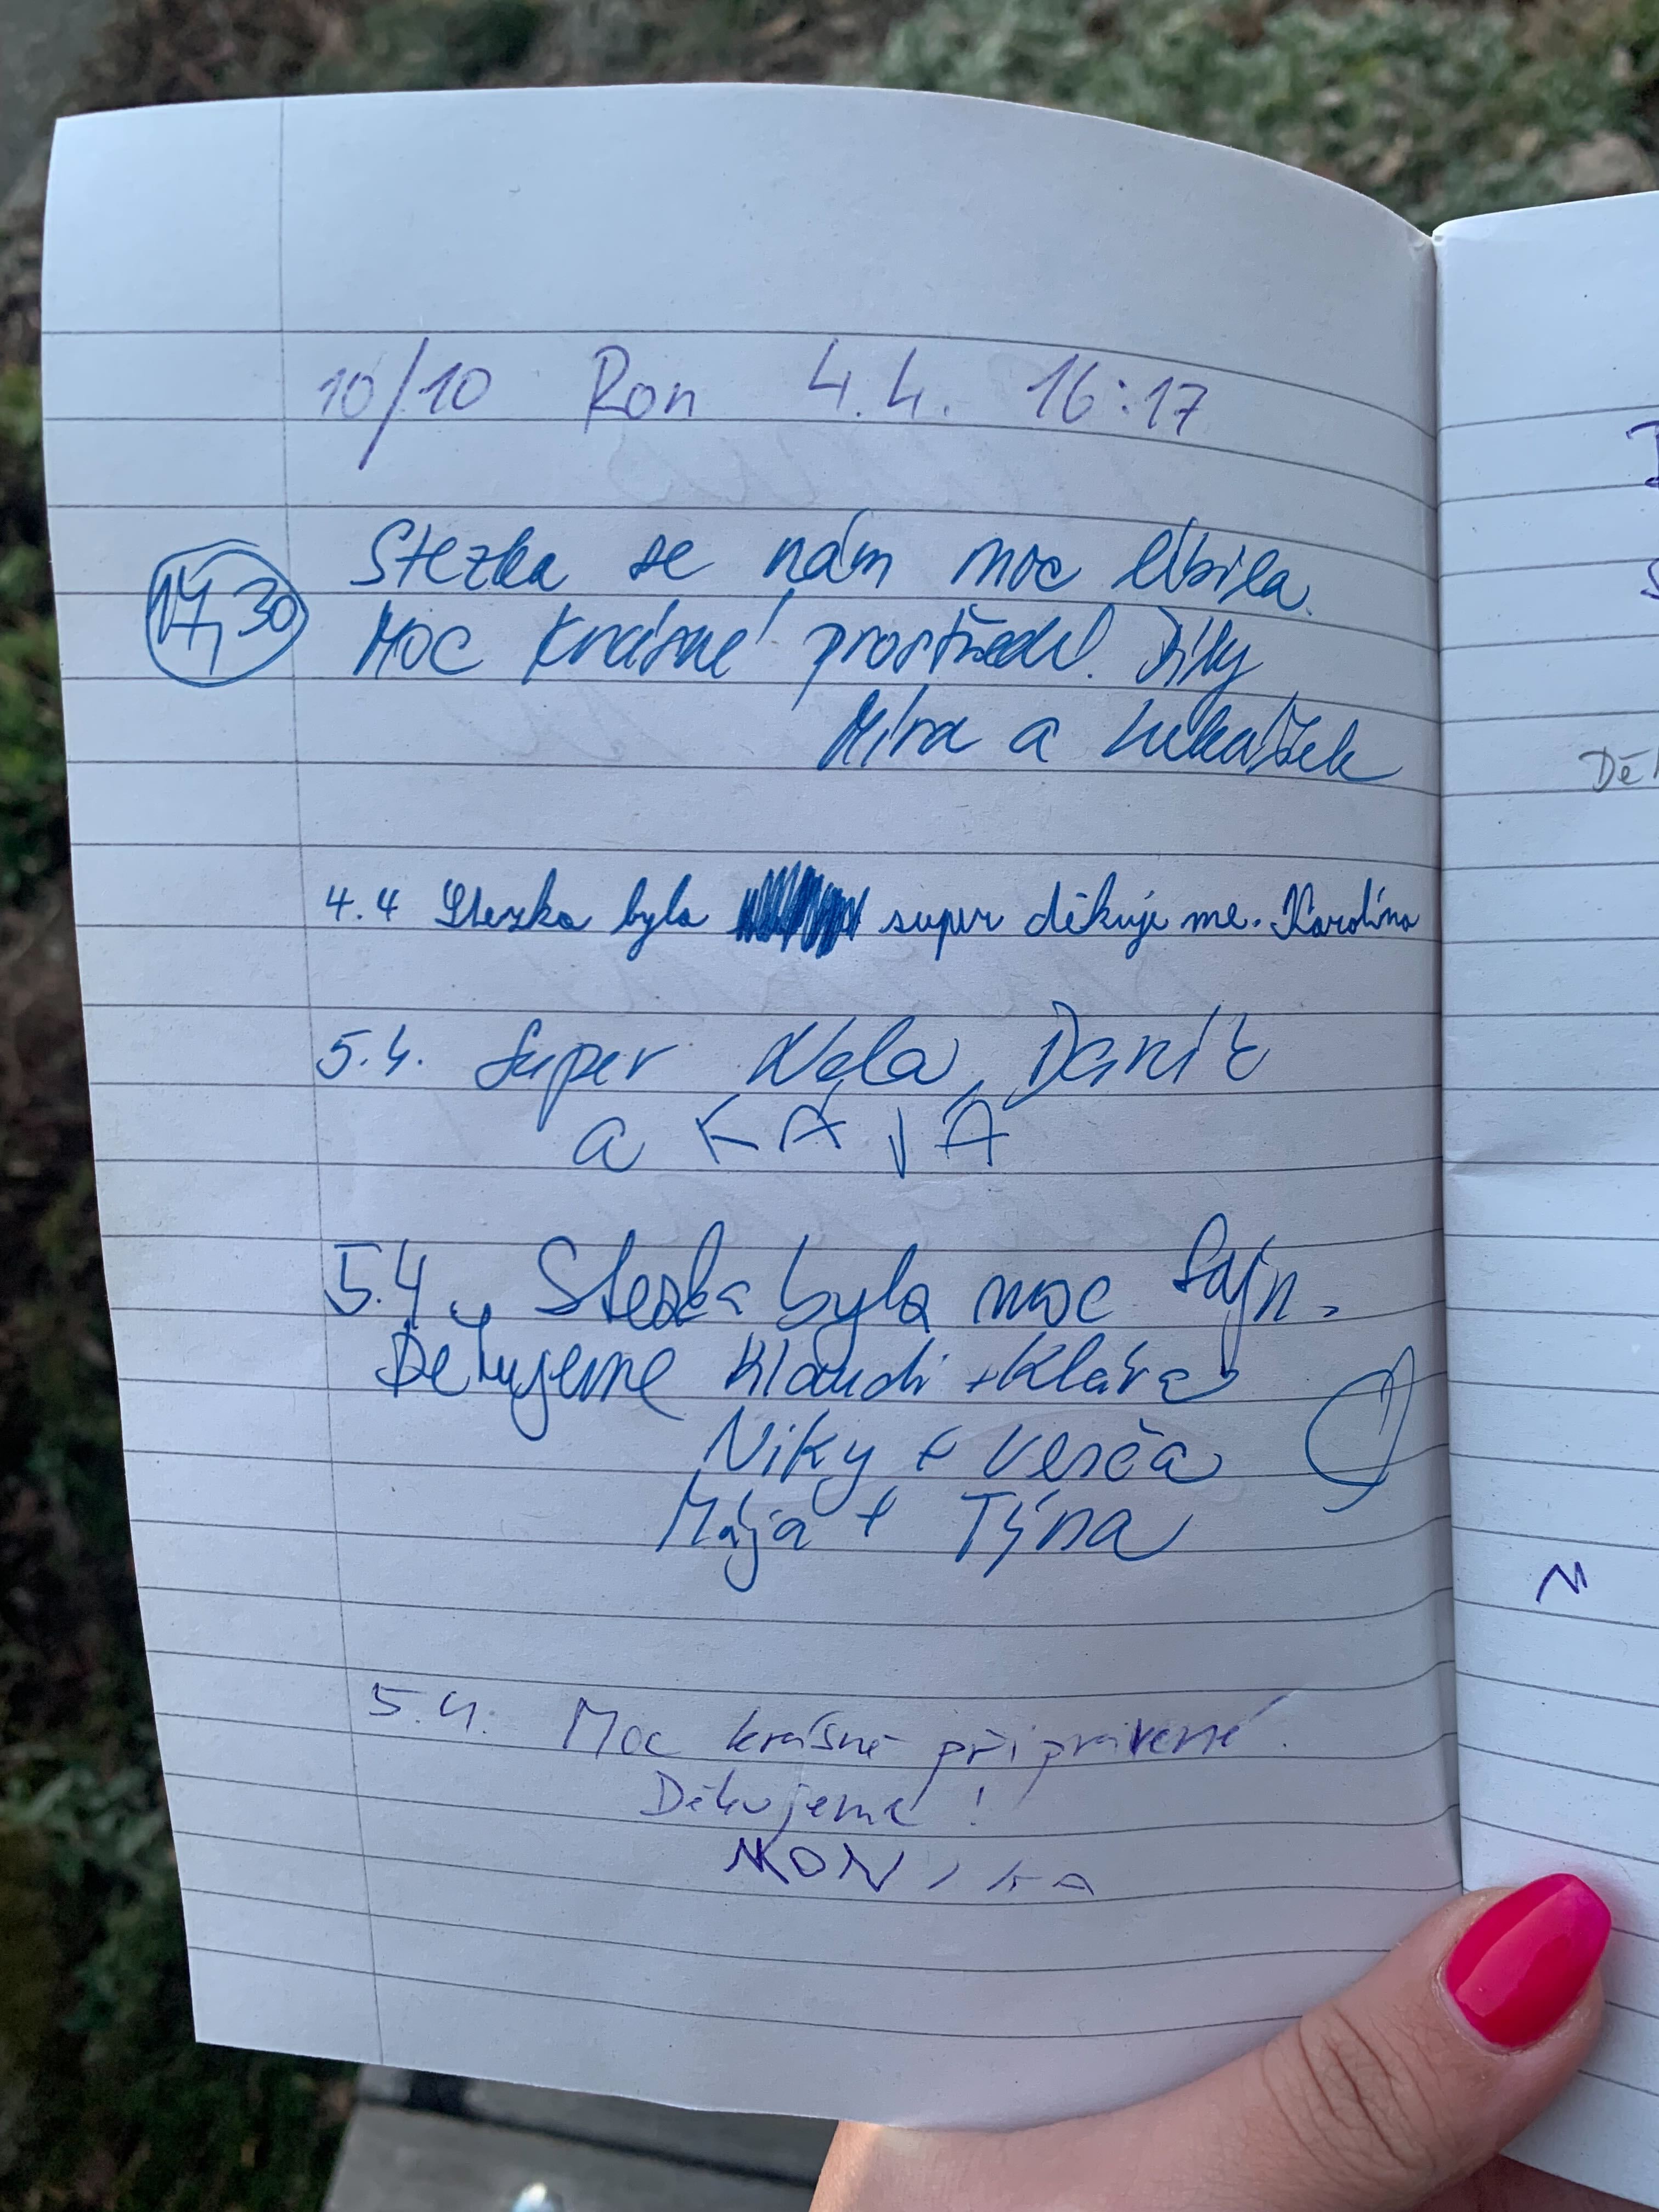 10/10 Ron 4.4. 16:17
17,30
Stezka se nám moc líbila.
Moc krásné prostředí! Díky
Míra a Lukášek
4.4 Stezka byla super děkuje me. Karolína
5.4. Super Nela, Daniel
a KÁJA
5.4. Stezka byla moc fajn.
Děkujeme Klaudi + Klára
Niky + Verča
Mája + Týna
5.4. Moc krásně připravené.
Děkujeme!
MONIKA
Dě
N